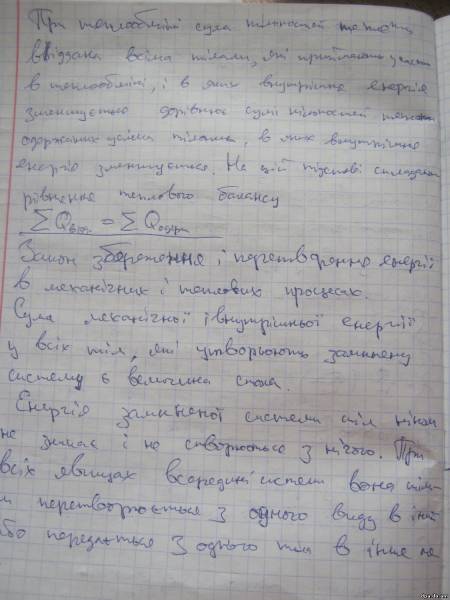 При теплообміні сума кількостей теплоти
віддана всіма тілами, які приймають участь
в теплообміні, і в яких внутрішня енергія
зменшується дорівнює сумі кількостей теплоти
одержаних усіма тілами, в яких внутрішня
енергія зменшується. На цій підставі складають
рівняння теплового балансу
∑Qвід. = ∑Qодерж
Закон збереження і перетворення енергії
в механічних і теплових процесах.
Сума механічної і внутрішньої енергії
у всіх тіл, які утворюють замкнену
систему є величина стала.
Енергія замкненої системи тіл
не зникає і не створюється з нічого. При
всіх явищах всередині системи вона
перетворюється з одного виду в інший
або передається з одного тіла в інше не